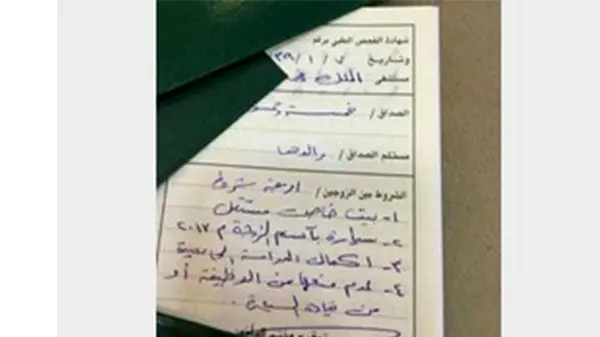 شهادة الفحص الطبي برقم
وتاريخ ٧ / ١ / ٣٩
مستشفى الملك
الصداق / خمسة
مستلم الصداق / والدها
الشروط بين الزوجين / اربعة شروط
١- بيت خاص مستقل
٢- سيارة بأسم الزوجة م ٢٠١٧
٣- اكمال الدراسة
٤- عدم منعها من الوظيفة أو
من قيادة السيارة .